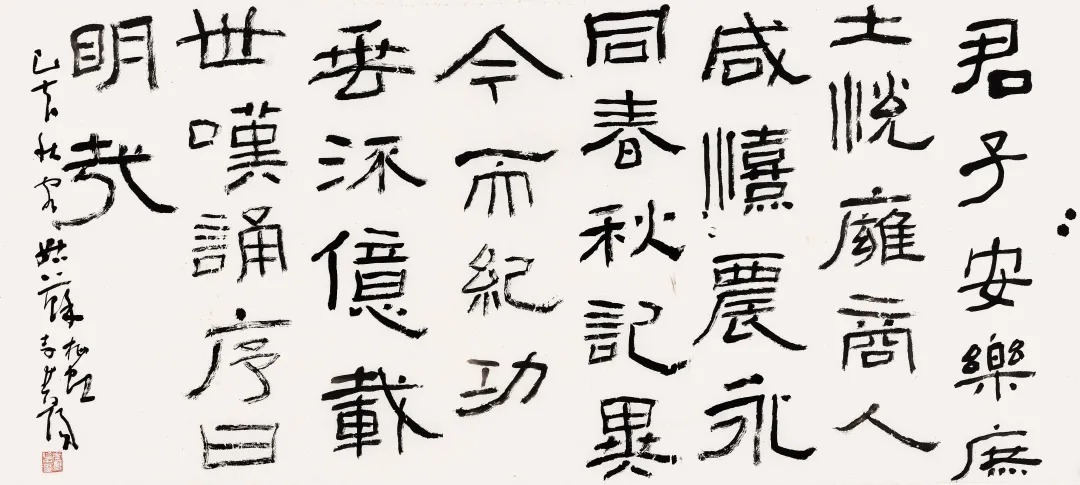 君子安樂庶
士悅廱商人
咸憘農永
同春秋記異
今而紀功
垂流億載
世嘆誦序曰
明哉
秋 姑蘇